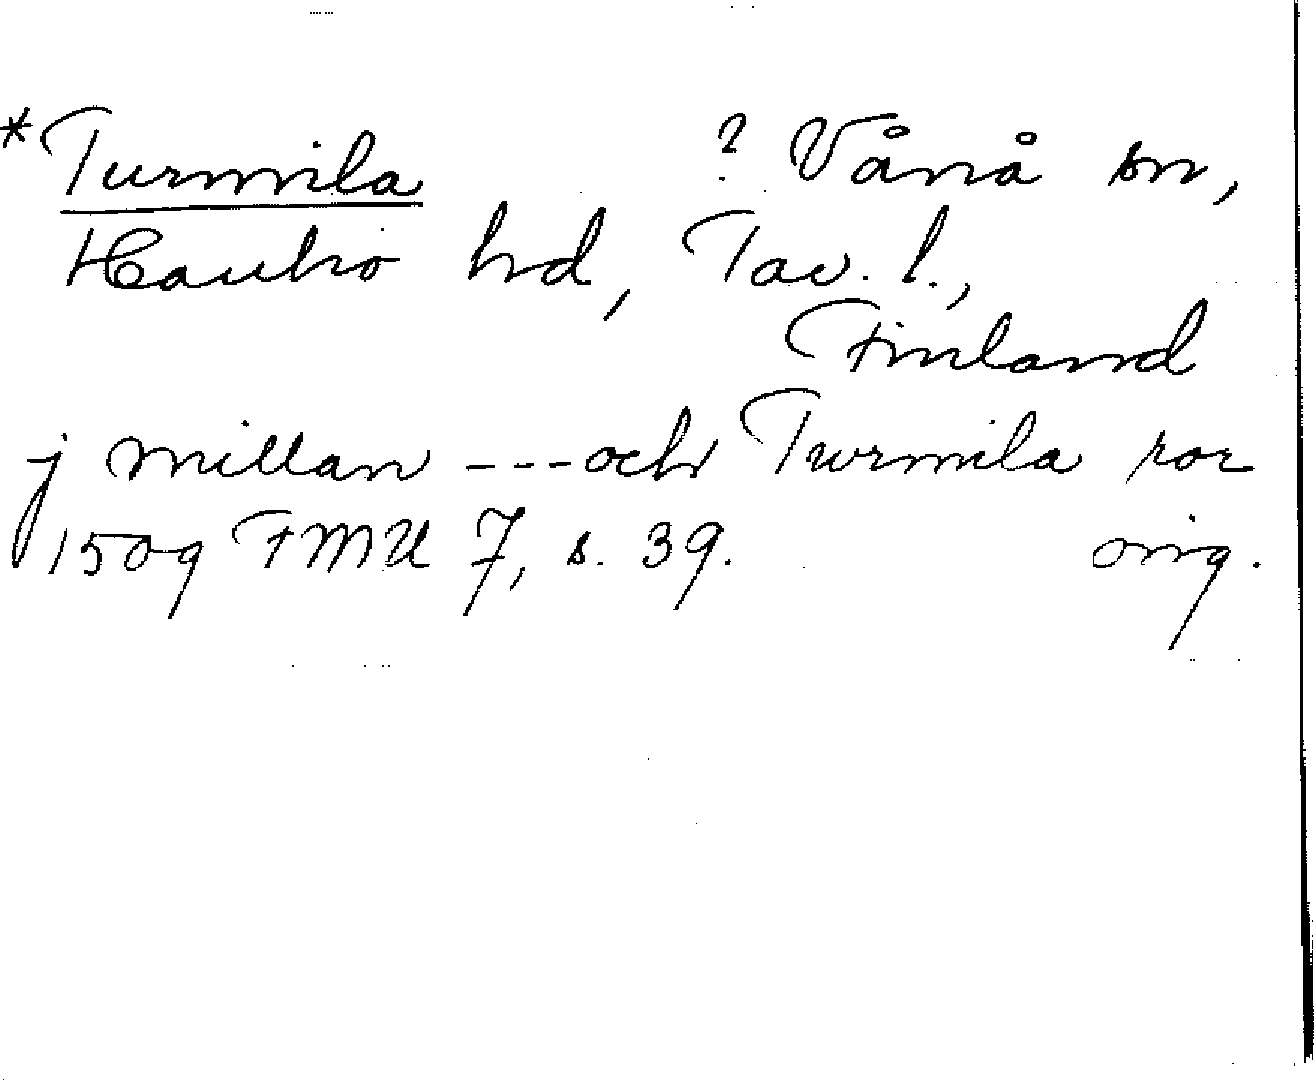 *Turmila ? Vånå sn,
Hauho hd, Tav. l.,
Finland
j millan ---och Turmila ror
1509 FMU 7, s. 39. orig.